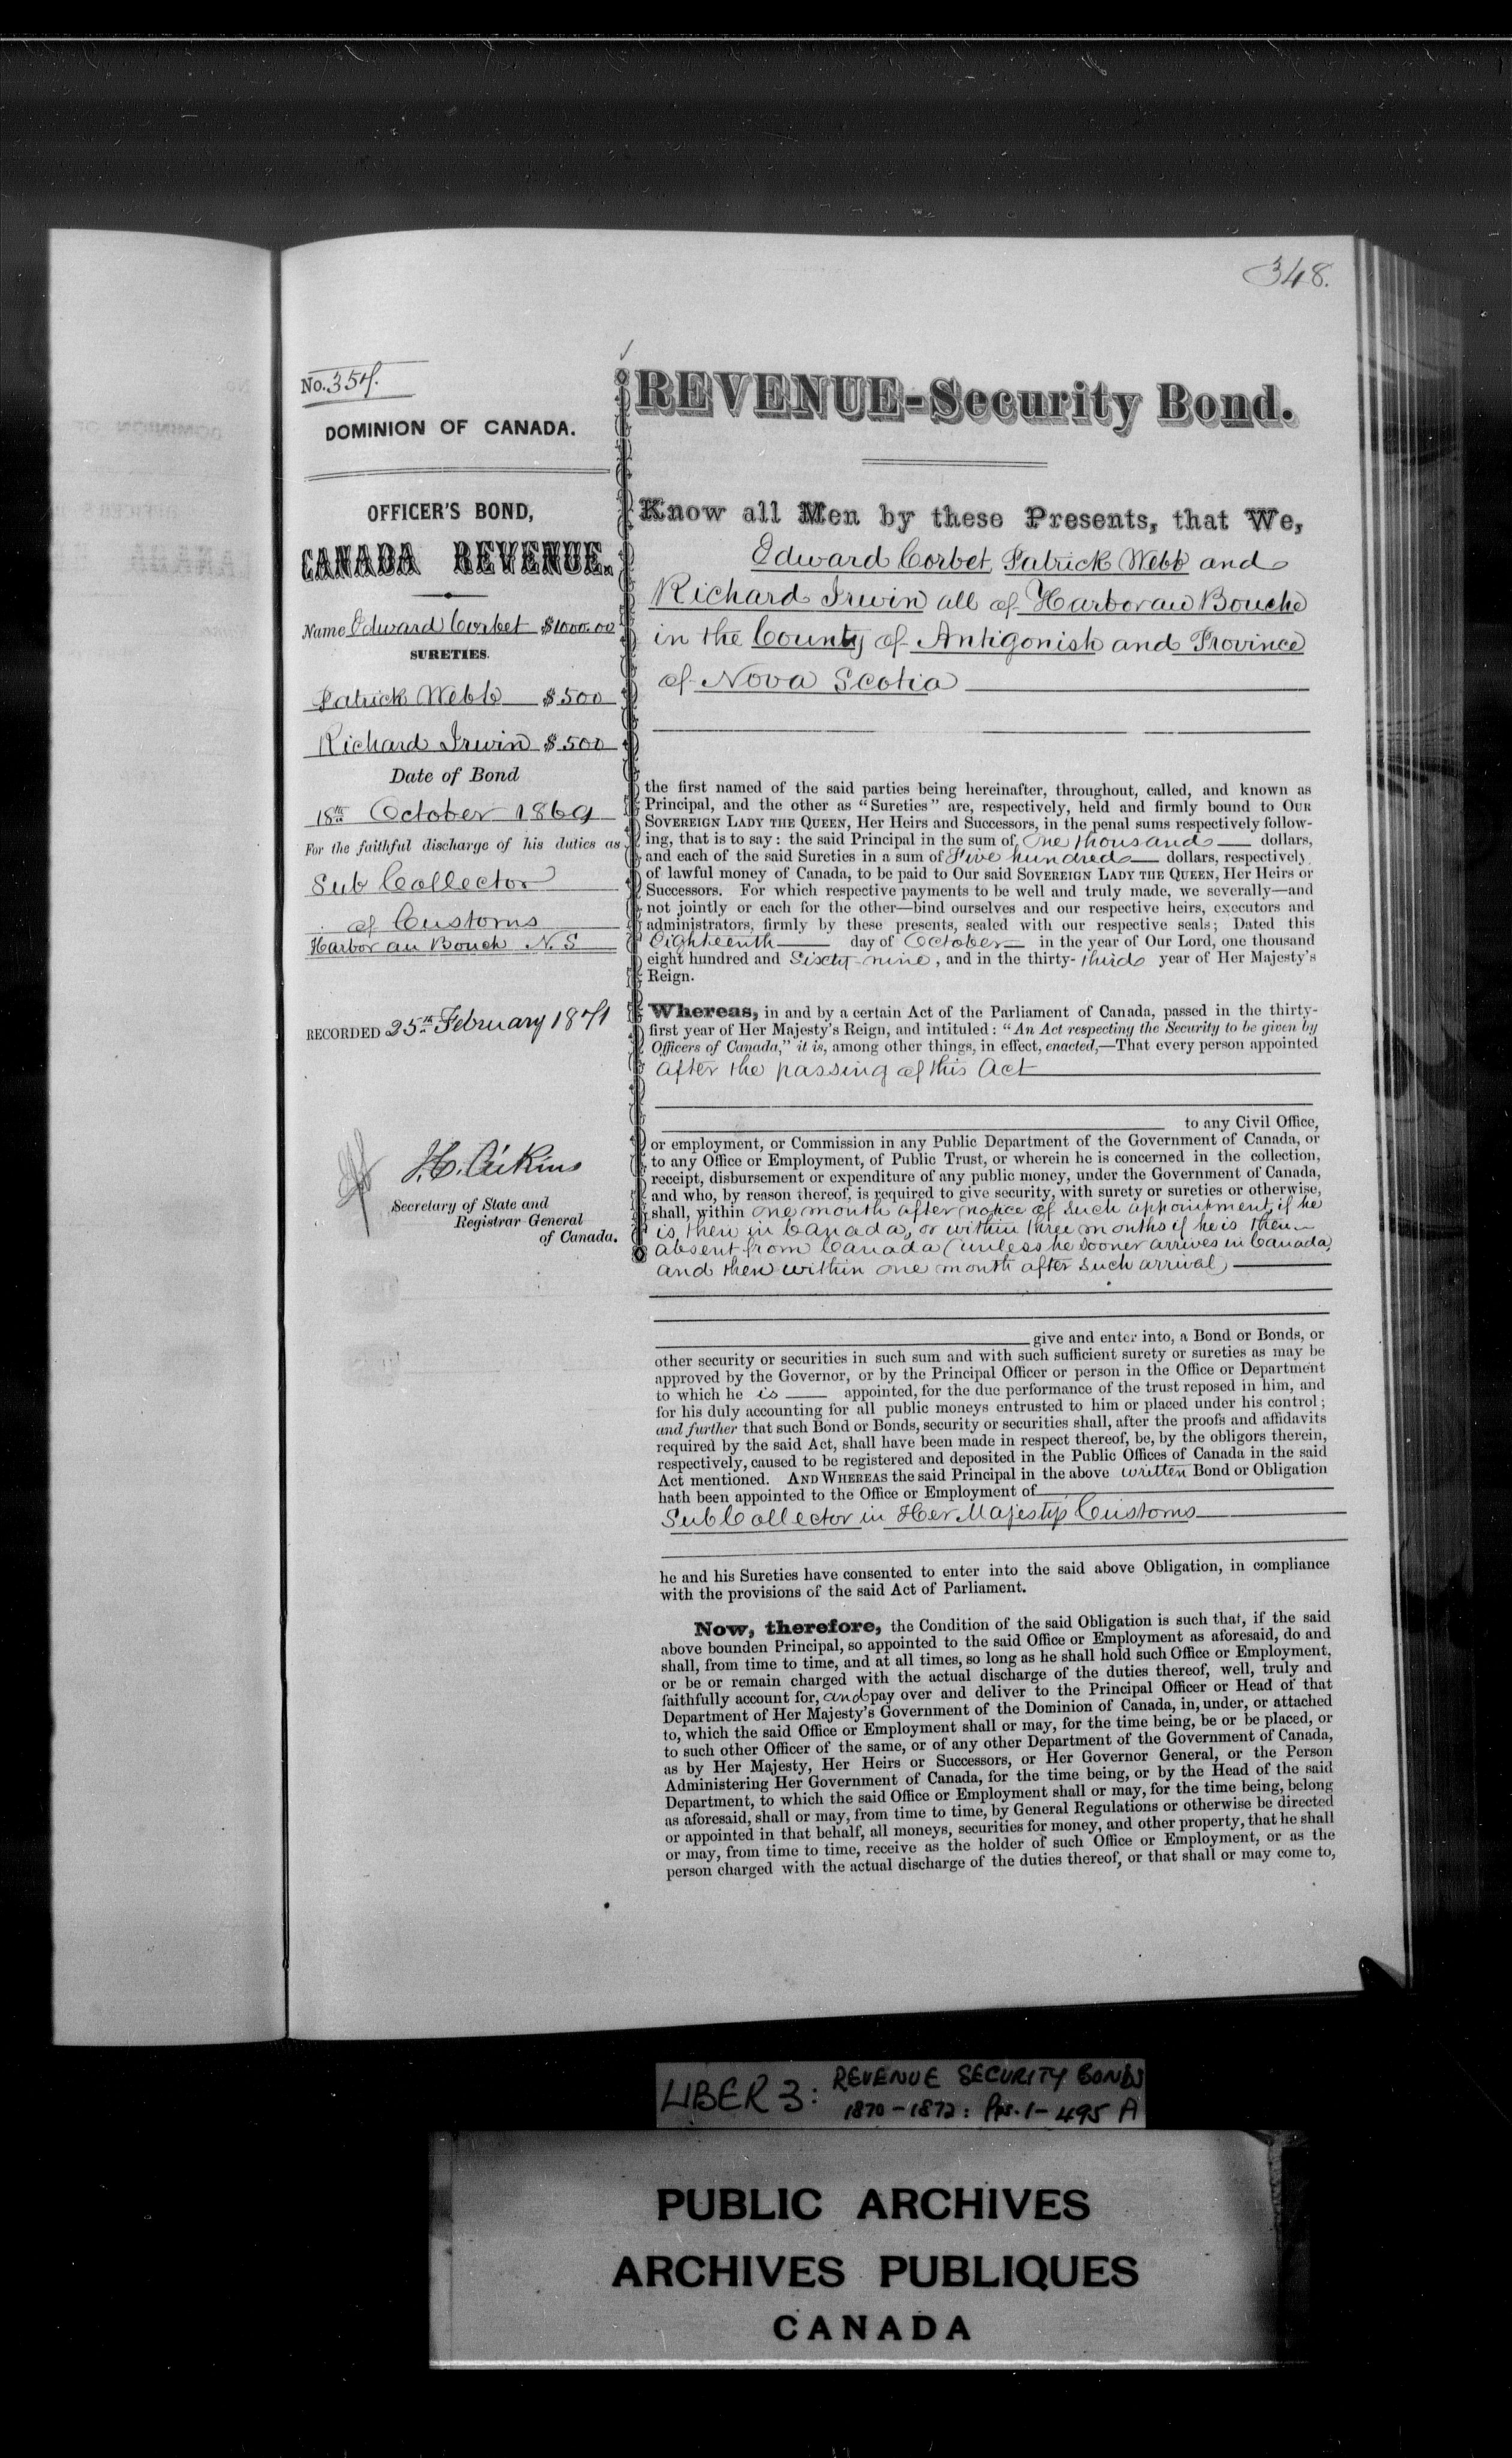 348.
No. 354.
DOMINION OF CANADA.
OFFICER'S BOND,
CANADA REVENUE.
Name Edward Corbet $1000.00
SURETIES.
Patrick Webb $500
Richard Irwin $500
Date of Bond
18th October 1869
For the faithful discharge of his duties as
Sub Collector
of Customs
Harbor au Bouch N.S
RECORDED 25th February 1871
J.C. Aikins
Secretary of State and
Registrar General
of Canada.
REVENUE-Security Bond.
Know all Men by these Presents, that We,
Edward Corbet, Patrick Webb and
Richard Irwin all of Harbor au Bouche
in the County of Antigonish and Province
of Nova Scotia
the first named of the said parties being hereinafter, throughout, called, and known as
Principal, and the other as "Sureties" are, respectively, held and firmly bound to OUR
SOVEREIGN LADY THE QUEEN, Her Heirs and Successors, in the penal sums respectively follow-
ing, that is to say: the said Principal in the sum of One thousand dollars,
and each of the said Sureties in a sum of Five hundred dollars, respectively
of lawful money of Canada, to be paid to Our said SOVEREIGN LADY THE QUEEN, Her Heirs or
Successors. For which respective payments to be well and truly made, we severally—and
not jointly or each for the other—bind ourselves and our respective heirs, executors and
administrators, firmly by these presents, sealed with our respective seals; Dated this
Eighteenth day of October in the year of Our Lord, one thousand
eight hundred and Sixty-nine, and in the thirty-third year of Her Majesty's
Reign.
Whereas, in and by a certain Act of the Parliament of Canada, passed in the thirty-
first year of Her Majesty's Reign, and intituled: "An Act respecting the Security to be given by
Officers of Canada," it is, among other things, in effect, enacted,—That every person appointed
after the passing of this Act
to any Civil Office,
or employment, or Commission in any Public Department of the Government of Canada, or
to any Office or Employment, of Public Trust, or wherein he is concerned in the collection,
receipt, disbursement or expenditure of any public money, under the Government of Canada,
and who, by reason thereof, is required to give security, with surety or sureties or otherwise,
shall, within one month after notice of such appointment, if he
is then in Canada, or within three months if he is then
absent from Canada (unless he sooner arrives in Canada,
and then within one month after such arrival)
give and enter into, a Bond or Bonds, or
other security or securities in such sum and with such sufficient surety or sureties as may be
approved by the Governor, or by the Principal Officer or person in the Office or Department
to which he is appointed, for the due performance of the trust reposed in him, and
for his duly accounting for all public moneys entrusted to him or placed under his control;
and further that such Bond or Bonds, security or securities shall, after the proofs and affidavits
required by the said Act, shall have been made in respect thereof, be, by the obligors therein,
respectively, caused to be registered and deposited in the Public Offices of Canada in the said
Act mentioned. AND WHEREAS the said Principal in the above written Bond or Obligation
hath been appointed to the Office or Employment of
Sub Collector in Her Majestys Customs
he and his Sureties have consented to enter into the said above Obligation, in compliance
with the provisions of the said Act of Parliament.
Now, therefore, the Condition of the said Obligation is such that, if the said
above bounden Principal, so appointed to the said Office or Employment as aforesaid, do and
shall, from time to time, and at all times, so long as he shall hold such Office or Employment,
or be or remain charged with the actual discharge of the duties thereof, well, truly and
faithfully account for, and pay over and deliver to the Principal Officer or Head of that
Department of Her Majesty's Government of the Dominion of Canada, in, under, or attached
to, which the said Office or Employment shall or may, for the time being, be or be placed, or
to such other Officer of the same, or of any other Department of the Government of Canada,
as by Her Majesty, Her Heirs or Successors, or Her Governor General, or the Person
Administering Her Government of Canada, for the time being, or by the Head of the said
Department, to which the said Office or Employment shall or may, for the time being, belong
as aforesaid, shall or may, from time to time, by General Regulations or otherwise be directed
or appointed in that behalf, all moneys, securities for money, and other property, that he shall
or may, from time to time, receive as the holder of such Office or Employment, or as the
person charged with the actual discharge of the duties thereof, or that shall or may come to,
LIBER 3: REVENUE SECURITY BONDS
1870-1872: Pps. 1-495 A
PUBLIC ARCHIVES
ARCHIVES PUBLIQUES
CANADA